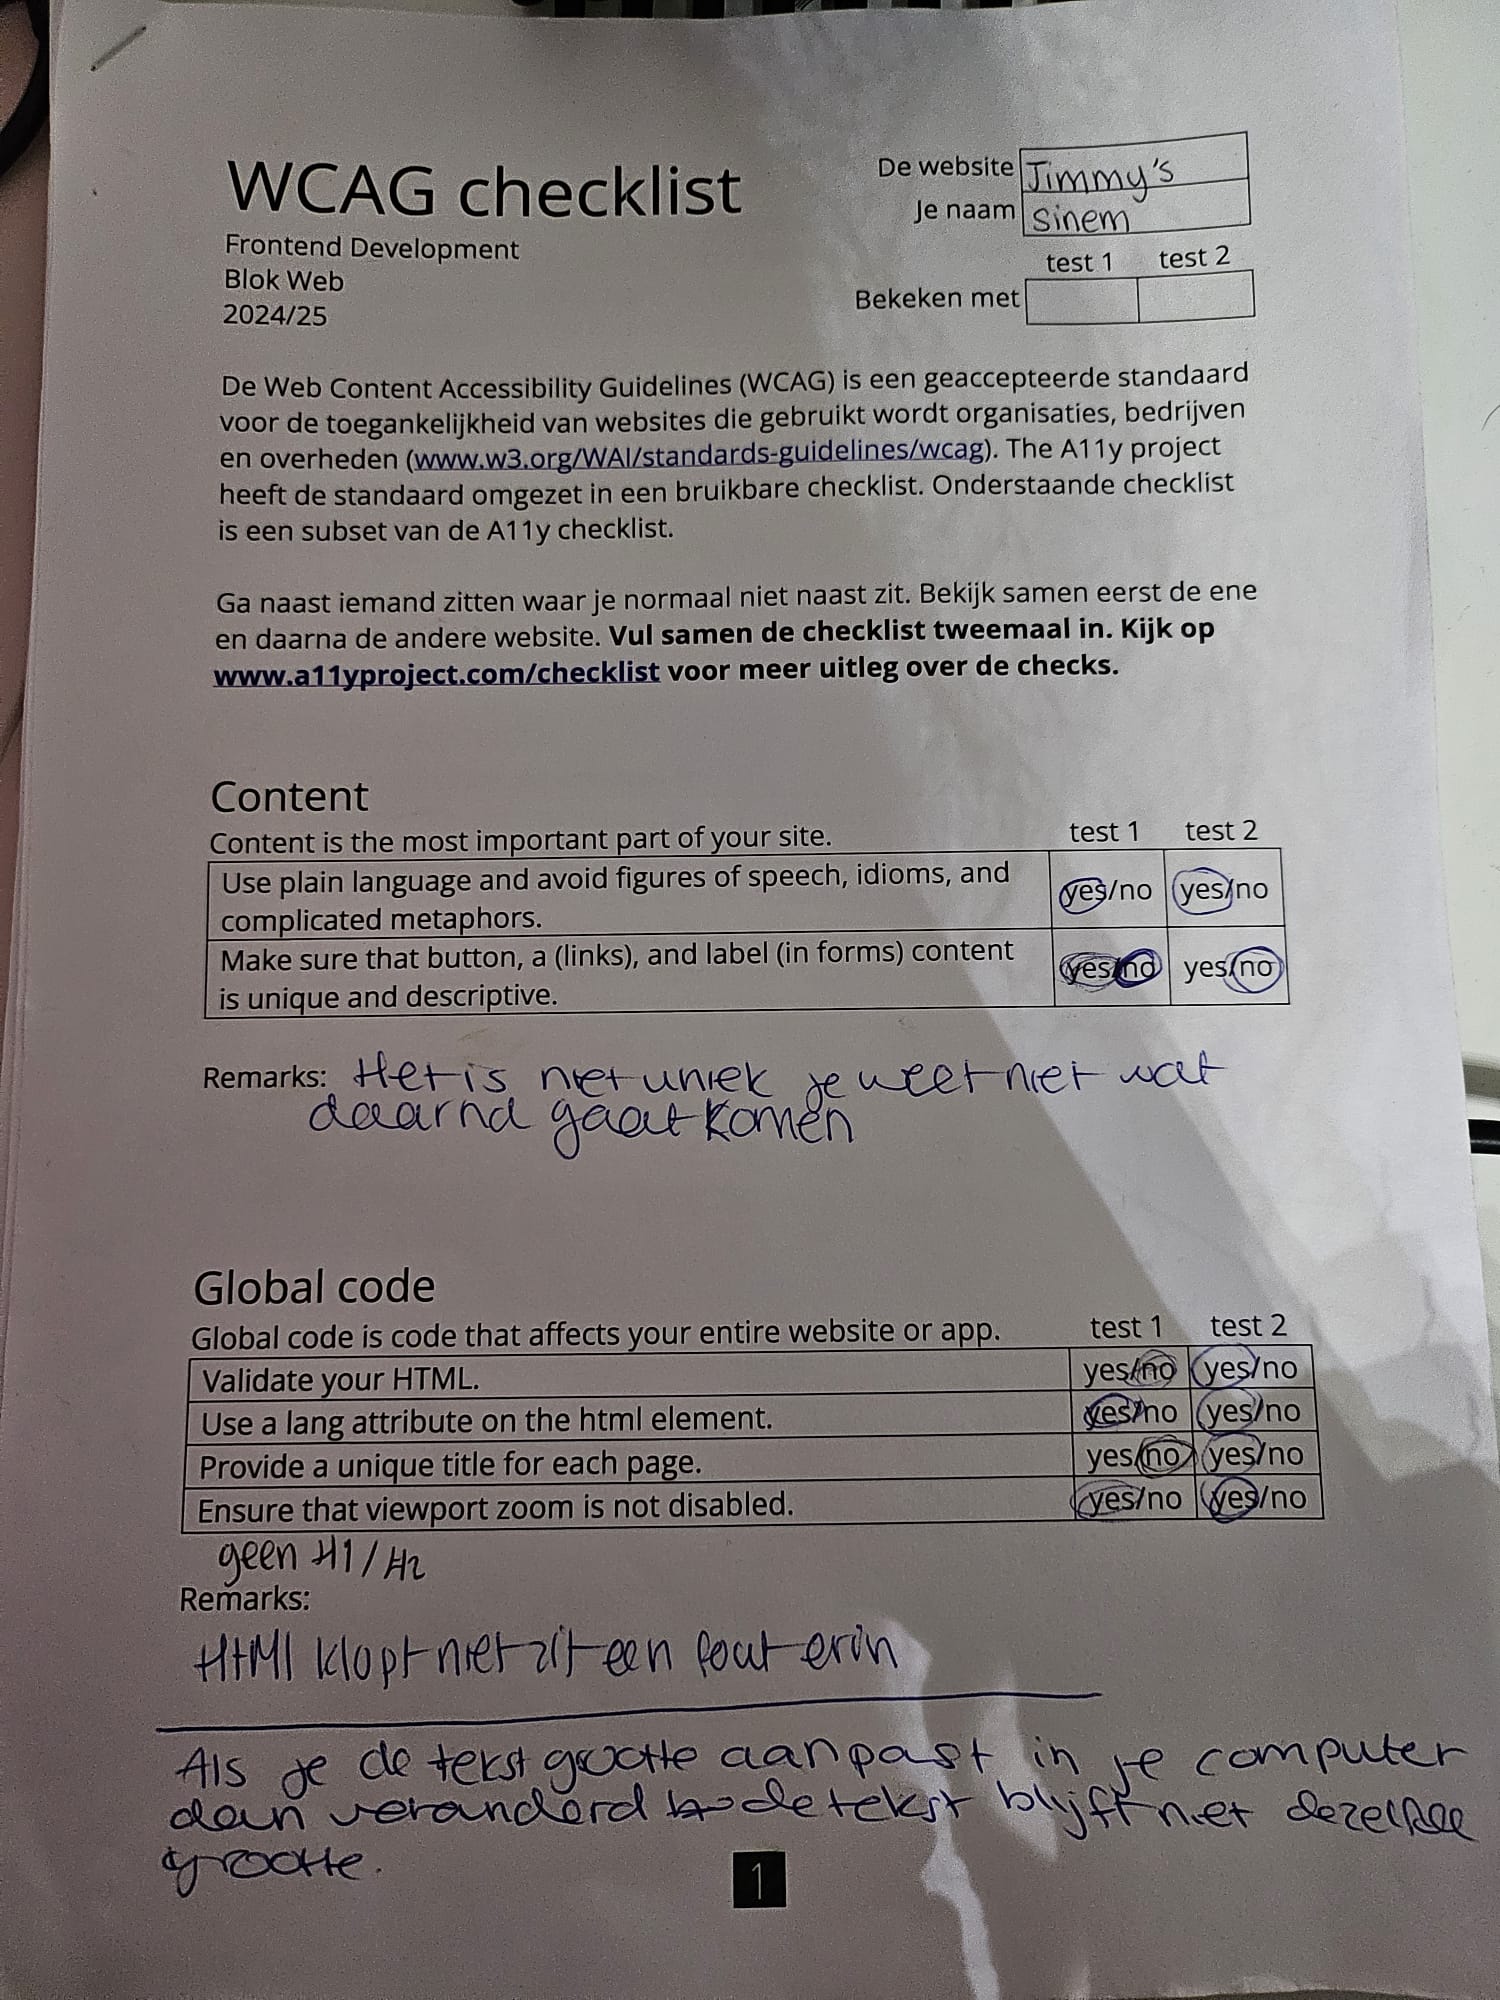 WCAG checklist
Frontend Development
Blok Web
2024/25
De website Jimmy's
Je naam Sinem
test 1 test 2
Bekeken met
De Web Content Accessibility Guidelines (WCAG) is een geaccepteerde standaard
voor de toegankelijkheid van websites die gebruikt wordt organisaties, bedrijven
en overheden (www.w3.org/WAI/standards-guidelines/wcag). The A11y project
heeft de standaard omgezet in een bruikbare checklist. Onderstaande checklist
is een subset van de A11y checklist.
Ga naast iemand zitten waar je normaal niet naast zit. Bekijk samen eerst de ene
en daarna de andere website. Vul samen de checklist tweemaal in. Kijk op
www.a11yproject.com/checklist voor meer uitleg over de checks.
Content
Content is the most important part of your site. test 1 test 2
Use plain language and avoid figures of speech, idioms, and
complicated metaphors. yes/no yes/no
Make sure that button, a (links), and label (in forms) content
is unique and descriptive. yes/no yes/no
Remarks: Het is niet uniek je weet niet wat
daarna gaat komen
Global code
Global code is code that affects your entire website or app. test 1 test 2
Validate your HTML. yes/no yes/no
Use a lang attribute on the html element. yes/no yes/no
Provide a unique title for each page. yes/no yes/no
Ensure that viewport zoom is not disabled. yes/no yes/no
geen H1/H2
Remarks:
HTMl klopt niet zit een fout erin
Als je de tekst grootte aanpast in je computer
dan veranderd de tekst blijft niet dezelfde
grootte.
1